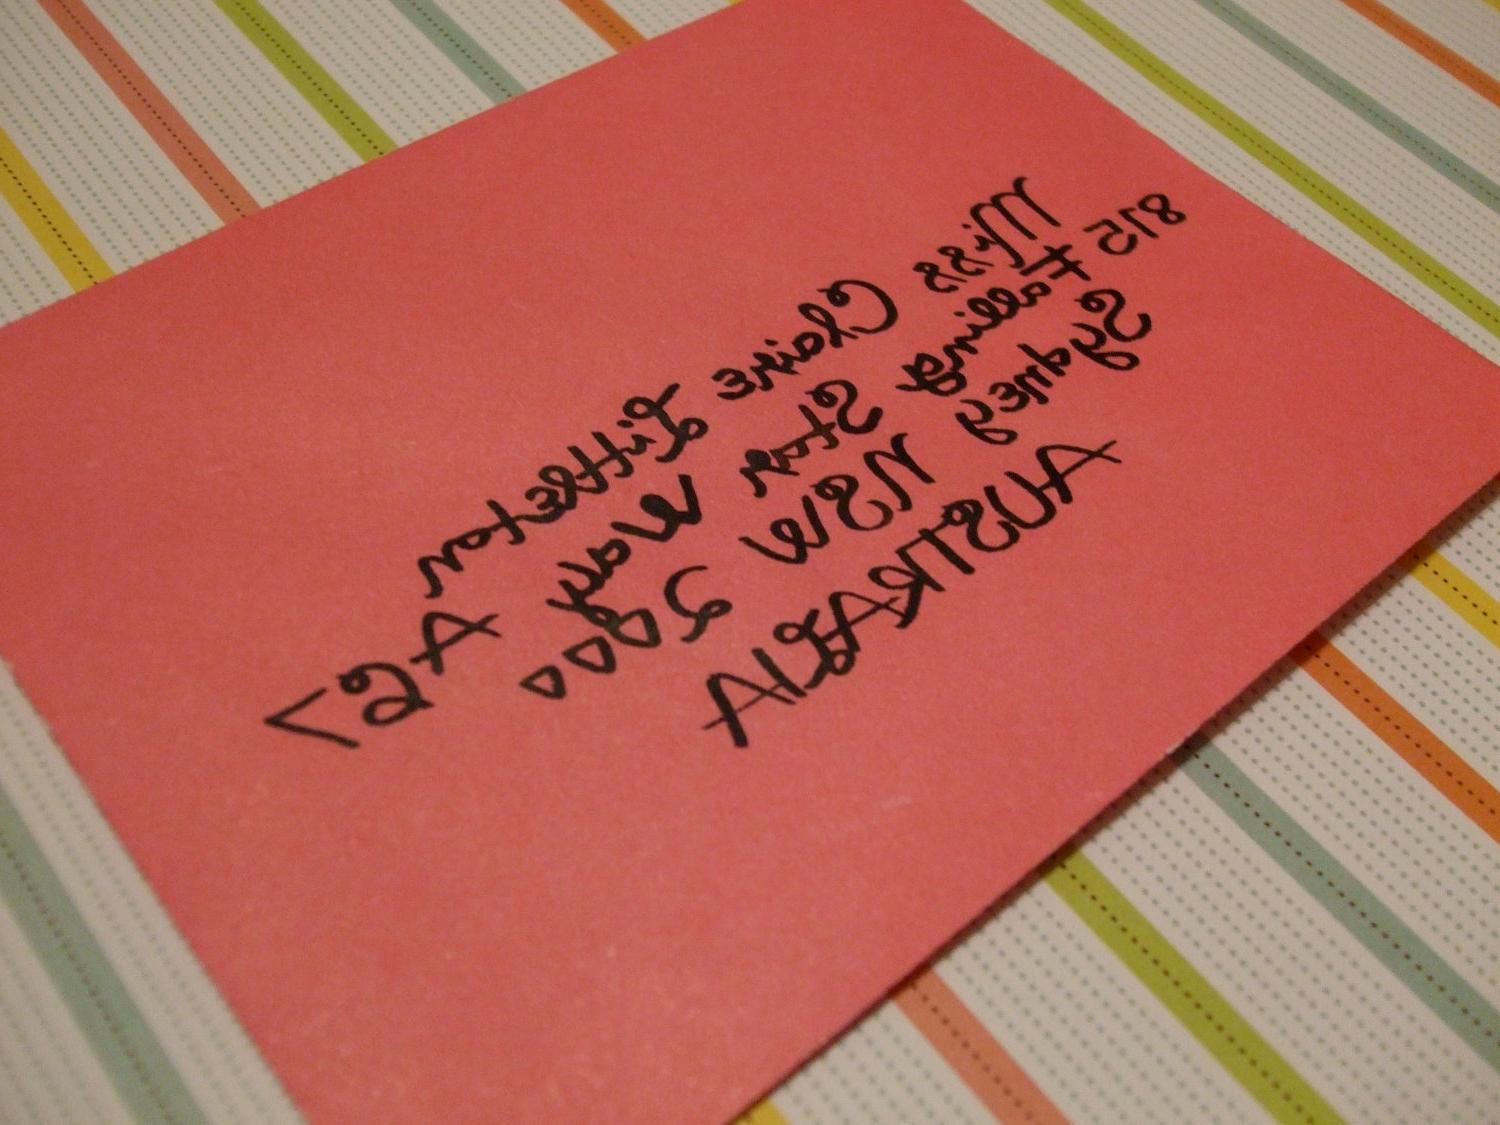 Miss Claire Littleton
815 Falling Star Way
Sydney NSW 2000
AUSTRALIA